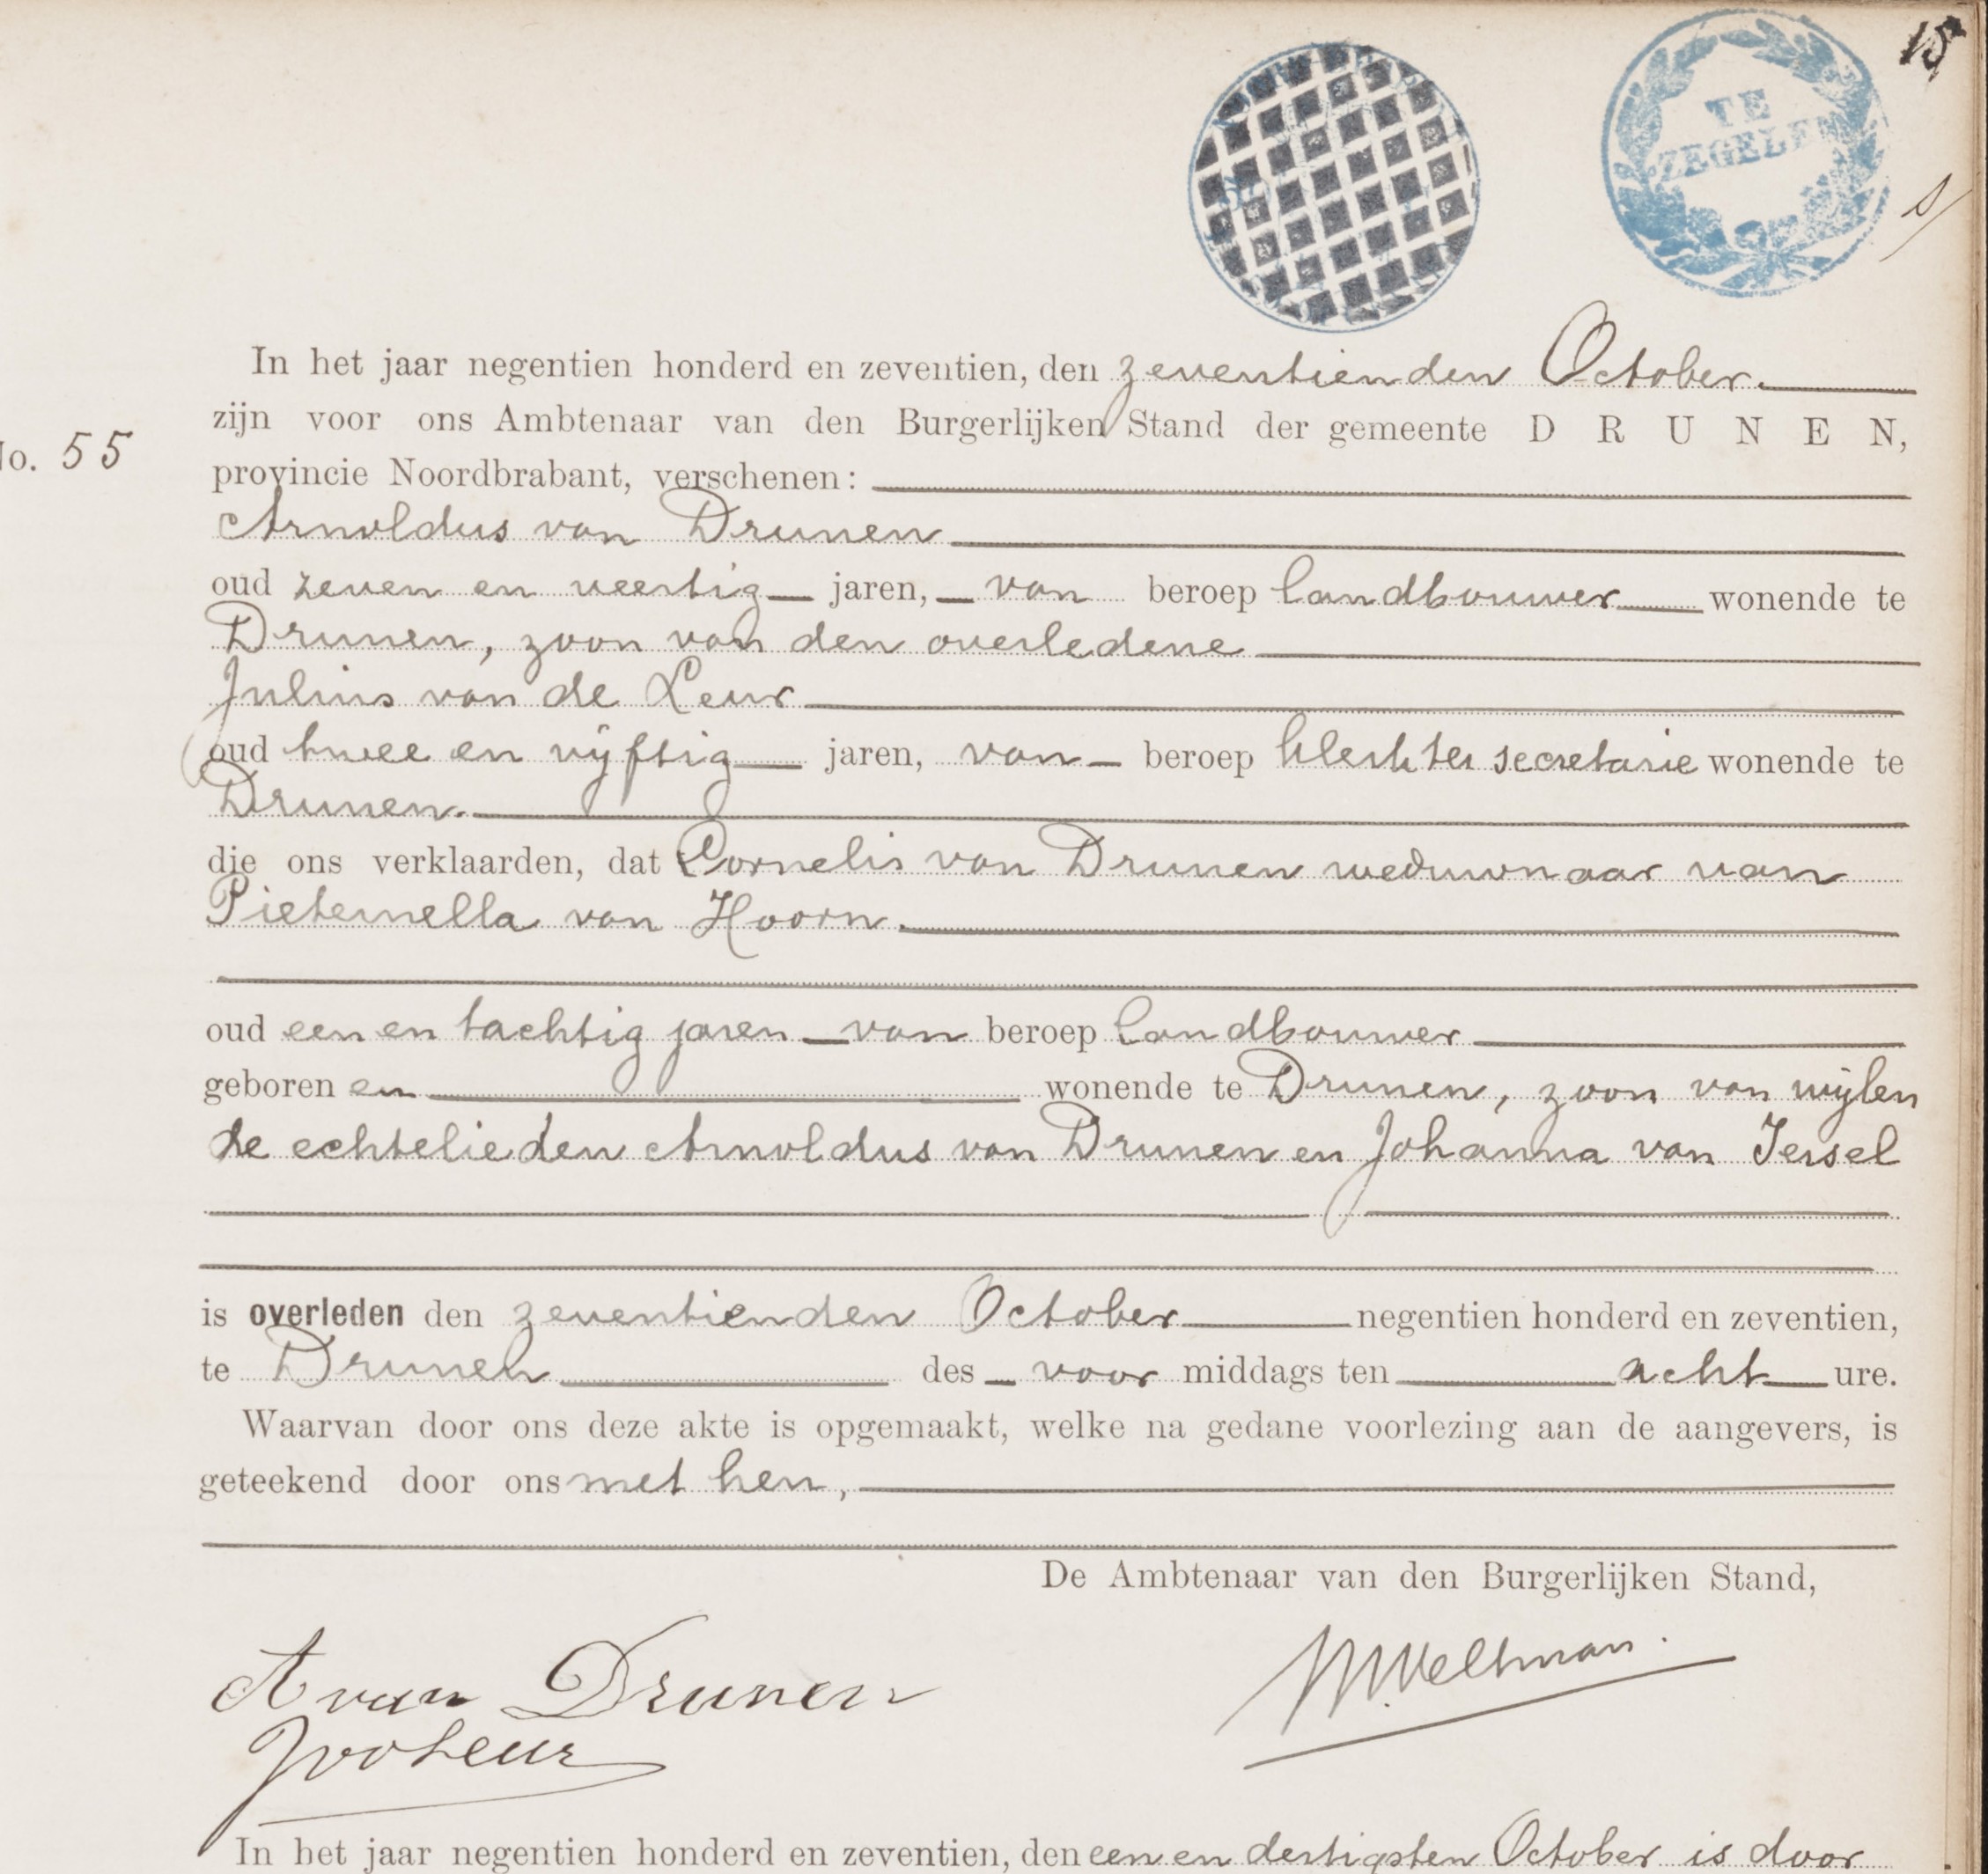 15
TE
ZEGELEN
In het jaar negentien honderd en zeventien, den zeventienden October.
zijn voor ons Ambtenaar van den Burgerlijken Stand der gemeente D R U N E N,
No. 55
provincie Noordbrabant, verschenen:
Arnoldus van Drunen
oud zeven en veertig jaren, van beroep landbouwer wonende te
Drunen, zoon van den overledene
Julius van de Leur
oud twee en vijftig jaren, van beroep klerk ter secretarie wonende te
Drunen.
die ons verklaarden, dat Cornelis van Drunen weduwnaar van
Pieternella van Hoorn.
oud een en tachtig jaren van beroep landbouwer
geboren en wonende te Drunen, zoon van wijlen
de echtelieden Arnoldus van Drunen en Johanna van Iersel
is overleden den zeventienden October negentien honderd en zeventien,
te Drunen des voor middags ten acht ure.
Waarvan door ons deze akte is opgemaakt, welke na gedane voorlezing aan de aangevers, is
geteekend door ons met hen,
De Ambtenaar van den Burgerlijken Stand,
A van Drunen
M. Veltman.
JvdLeur
In het jaar negentien honderd en zeventien, den een en dertigsten October is door